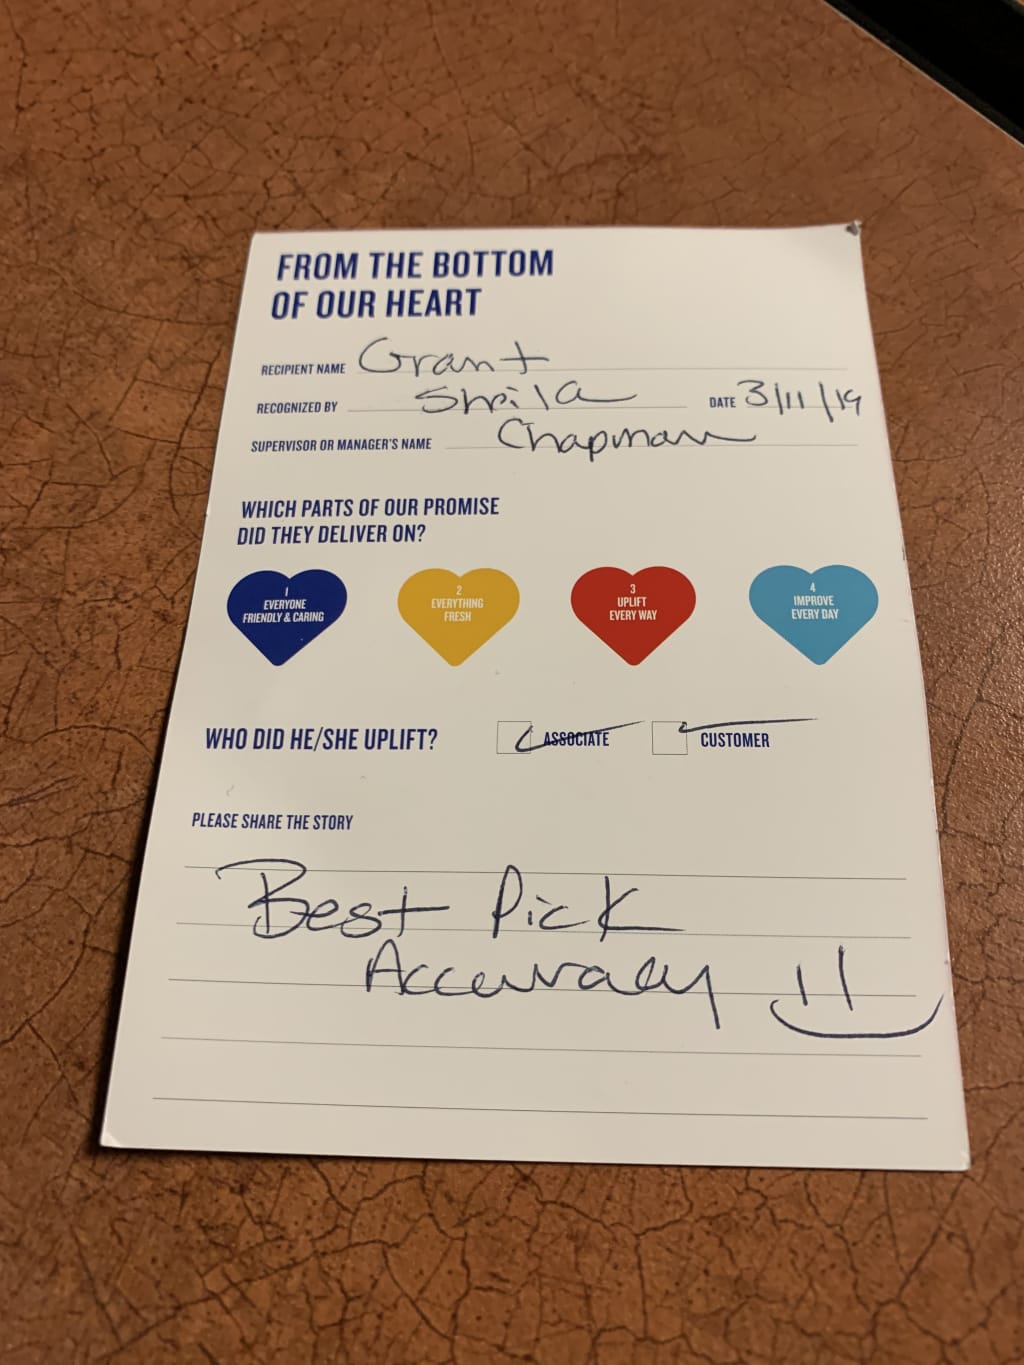 FROM THE BOTTOM
OF OUR HEART
RECIPIENT NAME Grant
RECOGNIZED BY Sheila DATE 3/11/19
SUPERVISOR OR MANAGER'S NAME Chapman
WHICH PARTS OF OUR PROMISE
DID THEY DELIVER ON?
1
EVERYONE
FRIENDLY & CARING
2
EVERYTHING
FRESH
3
UPLIFT
EVERY WAY
4
IMPROVE
EVERY DAY
WHO DID HE/SHE UPLIFT? ASSOCIATE CUSTOMER
PLEASE SHARE THE STORY
Best Pick
Accuracy